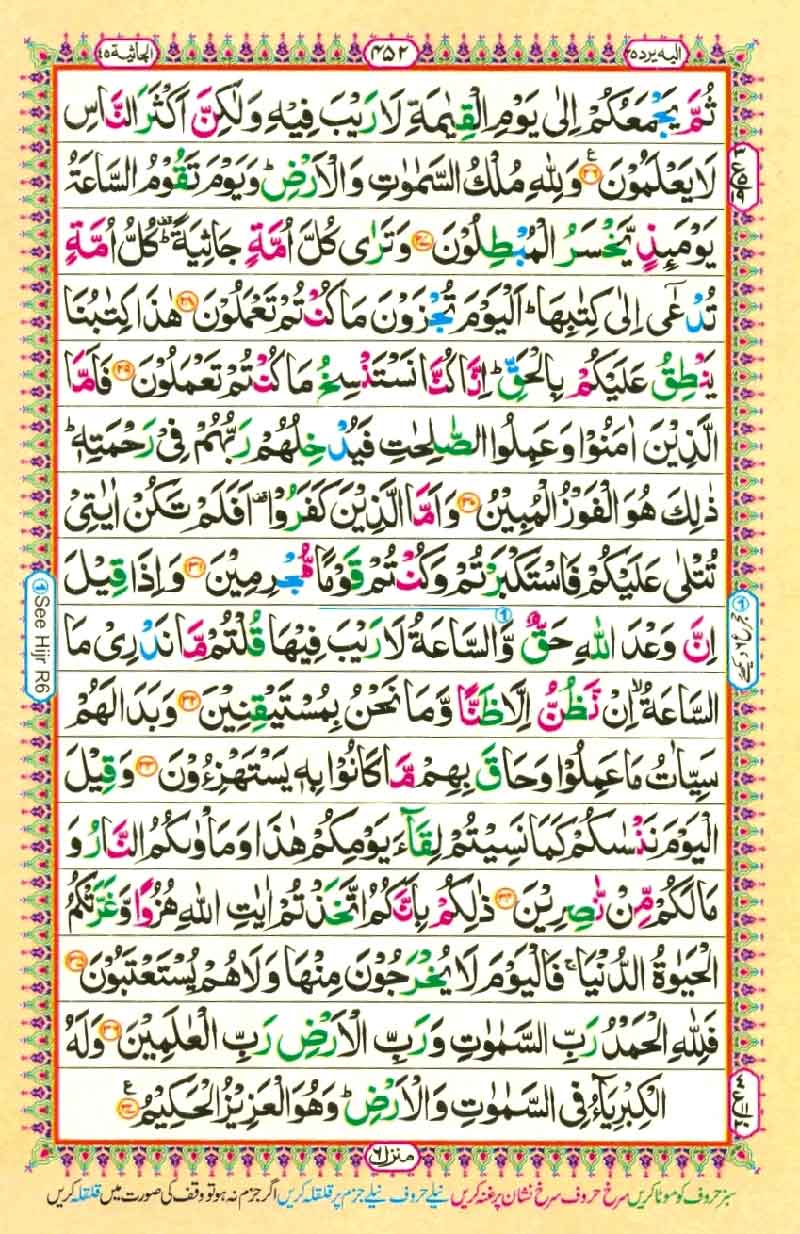 الیه یرده ۲۵
۴۵۲
الجاثیة ۴۵
ثُمَّ يَجْمَعُكُمْ اِلٰى يَوْمِ الْقِيٰمَةِ لَا رَيْبَ فِيْهِ وَلٰكِنَّ اَكْثَرَ النَّاسِ
لَا يَعْلَمُوْنَ ﴿۲۶﴾ وَلِلّٰهِ مُلْكُ السَّمٰوٰتِ وَالْاَرْضِ ؕ وَيَوْمَ تَقُوْمُ السَّاعَةُ
يَوْمَئِذٍ يَّخْسَرُ الْمُبْطِلُوْنَ ﴿۲۷﴾ وَتَرٰى كُلَّ اُمَّةٍ جَاثِيَةً ؕ كُلُّ اُمَّةٍ
تُدْعٰٓى اِلٰى كِتٰبِهَا ؕ اَلْيَوْمَ تُجْزَوْنَ مَا كُنْتُمْ تَعْمَلُوْنَ ﴿۲۸﴾ هٰذَا كِتٰبُنَا
يَنْطِقُ عَلَيْكُمْ بِالْحَقِّ ؕ اِنَّا كُنَّا نَسْتَنْسِخُ مَا كُنْتُمْ تَعْمَلُوْنَ ﴿۲۹﴾ فَاَمَّا
الَّذِيْنَ اٰمَنُوْا وَعَمِلُوا الصّٰلِحٰتِ فَيُدْخِلُهُمْ رَبُّهُمْ فِيْ رَحْمَتِهٖ ؕ
ذٰلِكَ هُوَ الْفَوْزُ الْمُبِيْنُ ﴿۳۰﴾ وَاَمَّا الَّذِيْنَ كَفَرُوْا ۫ اَفَلَمْ تَكُنْ اٰيٰتِيْ
تُتْلٰى عَلَيْكُمْ فَاسْتَكْبَرْتُمْ وَكُنْتُمْ قَوْمًا مُّجْرِمِيْنَ ﴿۳۱﴾ وَاِذَا قِيْلَ
اِنَّ وَعْدَ اللّٰهِ حَقٌّ وَّالسَّاعَةُ لَا رَيْبَ فِيْهَا قُلْتُمْ مَّا نَدْرِيْ مَا
السَّاعَةُ ۙ اِنْ نَّظُنُّ اِلَّا ظَنًّا وَّمَا نَحْنُ بِمُسْتَيْقِنِيْنَ ﴿۳۲﴾ وَبَدَا لَهُمْ
سَيِّاٰتُ مَا عَمِلُوْا وَحَاقَ بِهِمْ مَّا كَانُوْا بِهٖ يَسْتَهْزِءُوْنَ ﴿۳۳﴾ وَقِيْلَ
الْيَوْمَ نَنْسٰىكُمْ كَمَا نَسِيْتُمْ لِقَآءَ يَوْمِكُمْ هٰذَا وَمَاْوٰىكُمُ النَّارُ وَ
مَا لَكُمْ مِّنْ نّٰصِرِيْنَ ﴿۳۴﴾ ذٰلِكُمْ بِاَنَّكُمُ اتَّخَذْتُمْ اٰيٰتِ اللّٰهِ هُزُوًا وَّغَرَّتْكُمُ
الْحَيٰوةُ الدُّنْيَا ۚ فَالْيَوْمَ لَا يُخْرَجُوْنَ مِنْهَا وَلَا هُمْ يُسْتَعْتَبُوْنَ ﴿۳۵﴾
فَلِلّٰهِ الْحَمْدُ رَبِّ السَّمٰوٰتِ وَرَبِّ الْاَرْضِ رَبِّ الْعٰلَمِيْنَ ﴿۳۶﴾ وَلَهُ
الْكِبْرِيَآءُ فِي السَّمٰوٰتِ وَالْاَرْضِ ؕ وَهُوَ الْعَزِيْزُ الْحَكِيْمُ ﴿۳۷﴾
See Hijr R6
منزل ۶
سبز حروف کو موٹا کریں سرخ حروف سرخ نشان پر غنہ کریں نیلے حروف نیلے جزم پر قلقلہ کریں اگر جزم نہ ہو تو وقف کی صورت میں قلقلہ کریں